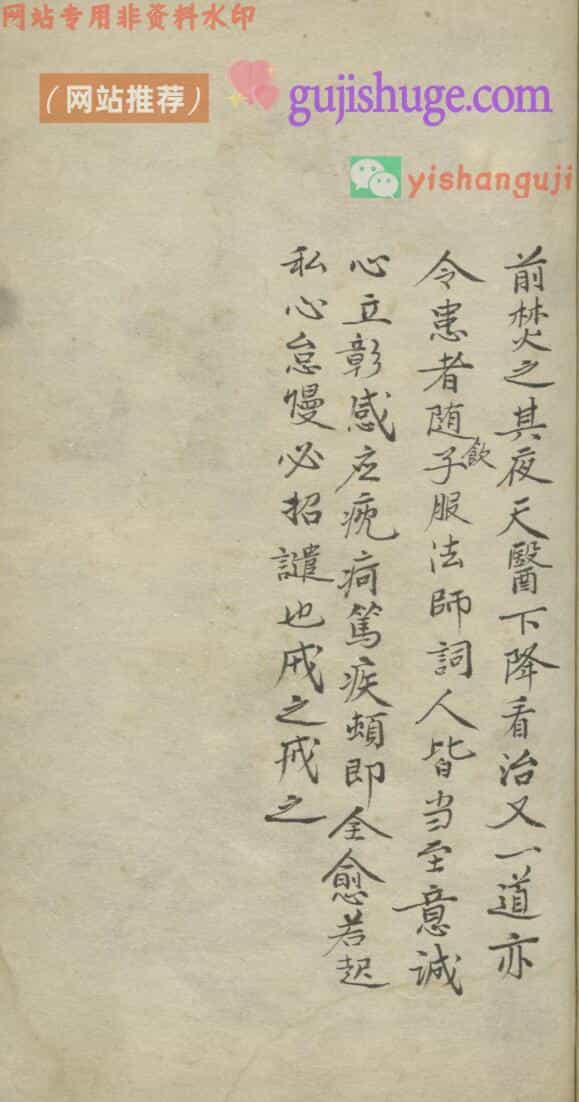 网站专用非资料水印
（网站推荐）
gujishuge.com
yishanguji
前焚之其夜天醫下降看治又一道亦
令患者随子飲服法師詞人皆当至意诚
心立彰感应疣疴篤疾頓即全愈若起
私心怠慢必招譴也戒之戒之